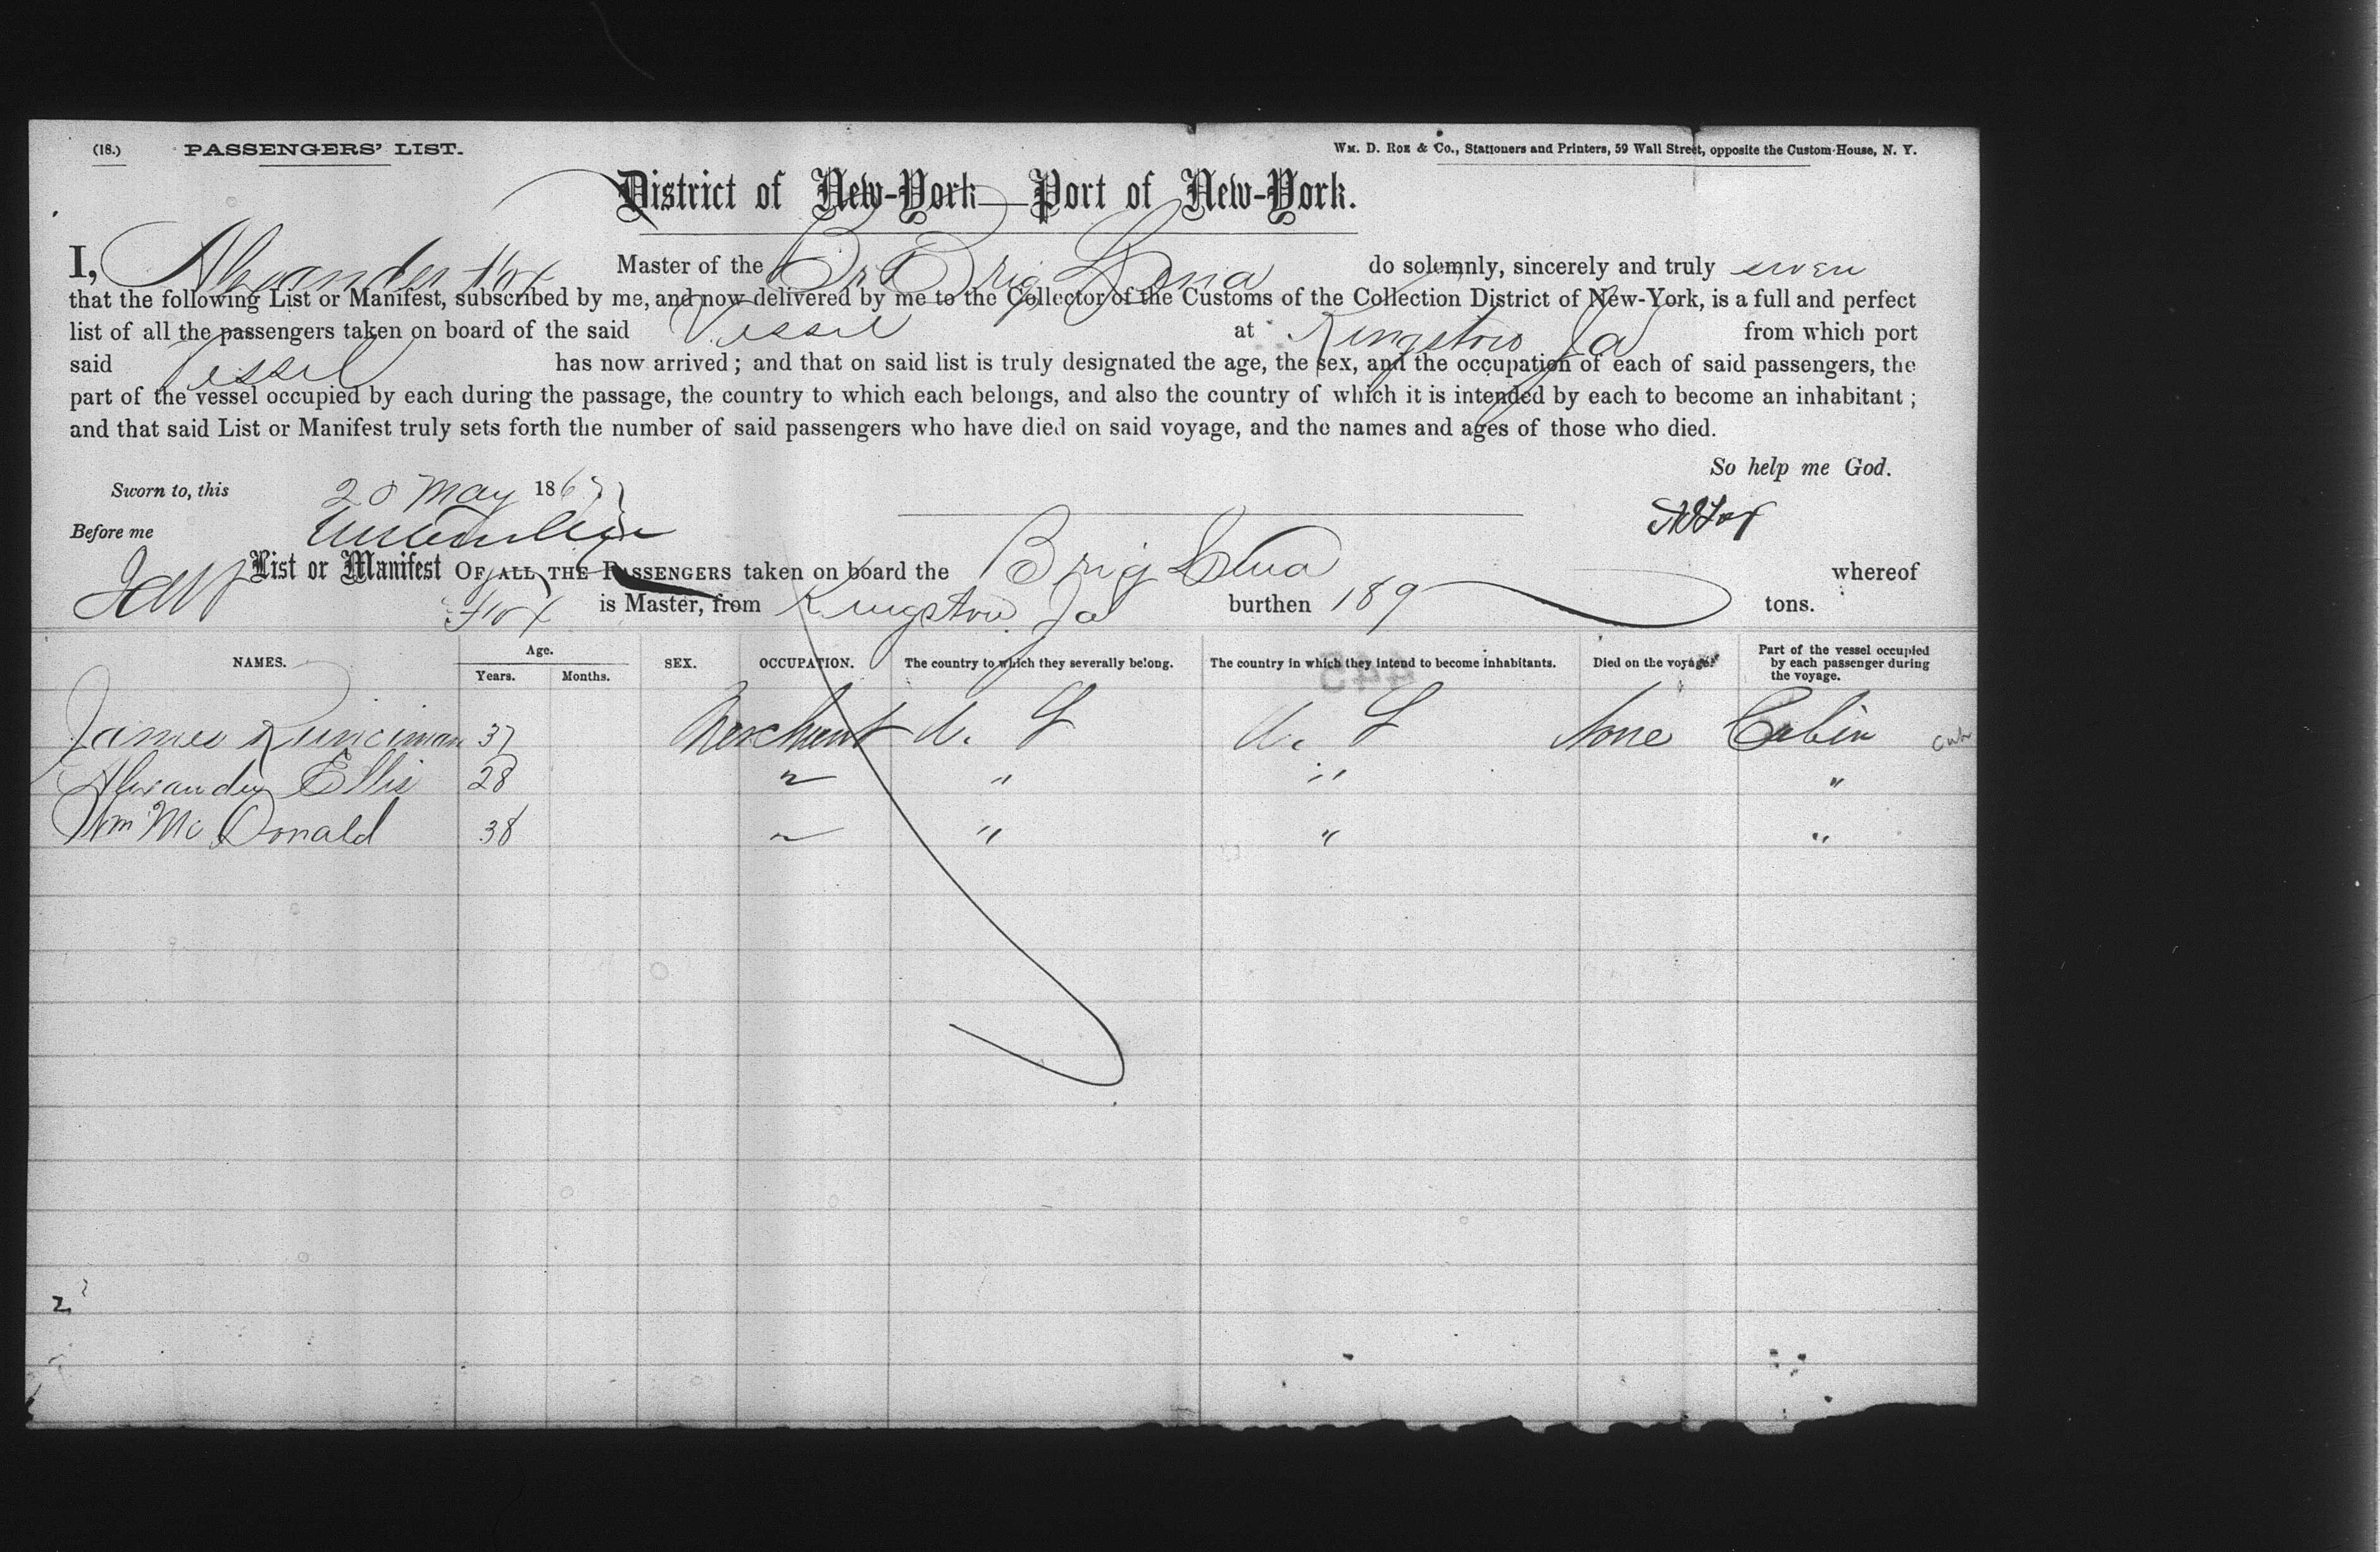 (18.) PASSENGERS' LIST. Wm. D. Roe & Co., Stationers and Printers, 59 Wall Street, opposite the Custom-House, N. Y.
District of New-York—Port of New-York.
I, Alexander Fox Master of the Br Brig do solemnly, sincerely and truly
that the following List or Manifest, subscribed by me, and now delivered by me to the Collector of the Customs of the Collection District of New-York, is a full and perfect
list of all the passengers taken on board of the said Vessel at Kingston Ja from which port
said Vessel has now arrived; and that on said list is truly designated the age, the sex, and the occupation of each of said passengers, the
part of the vessel occupied by each during the passage, the country to which each belongs, and also the country of which it is intended by each to become an inhabitant;
and that said List or Manifest truly sets forth the number of said passengers who have died on said voyage, and the names and ages of those who died.
So help me God.
Sworn to, this 20 May 186
Before me
List or Manifest OF ALL THE PASSENGERS taken on board the Brig whereof
Fox is Master, from Kingston Ja burthen 189 tons.
NAMES. Age. Years. Months. SEX. OCCUPATION. The country to which they severally belong. The country in which they intend to become inhabitants. Died on the voyage. Part of the vessel occupied by each passenger during the voyage.
James Runciman 37 Merchant U. S U. S None Cabin
Alexander Ellis 28 " " " "
Wm McDonald 38 " " " "
2